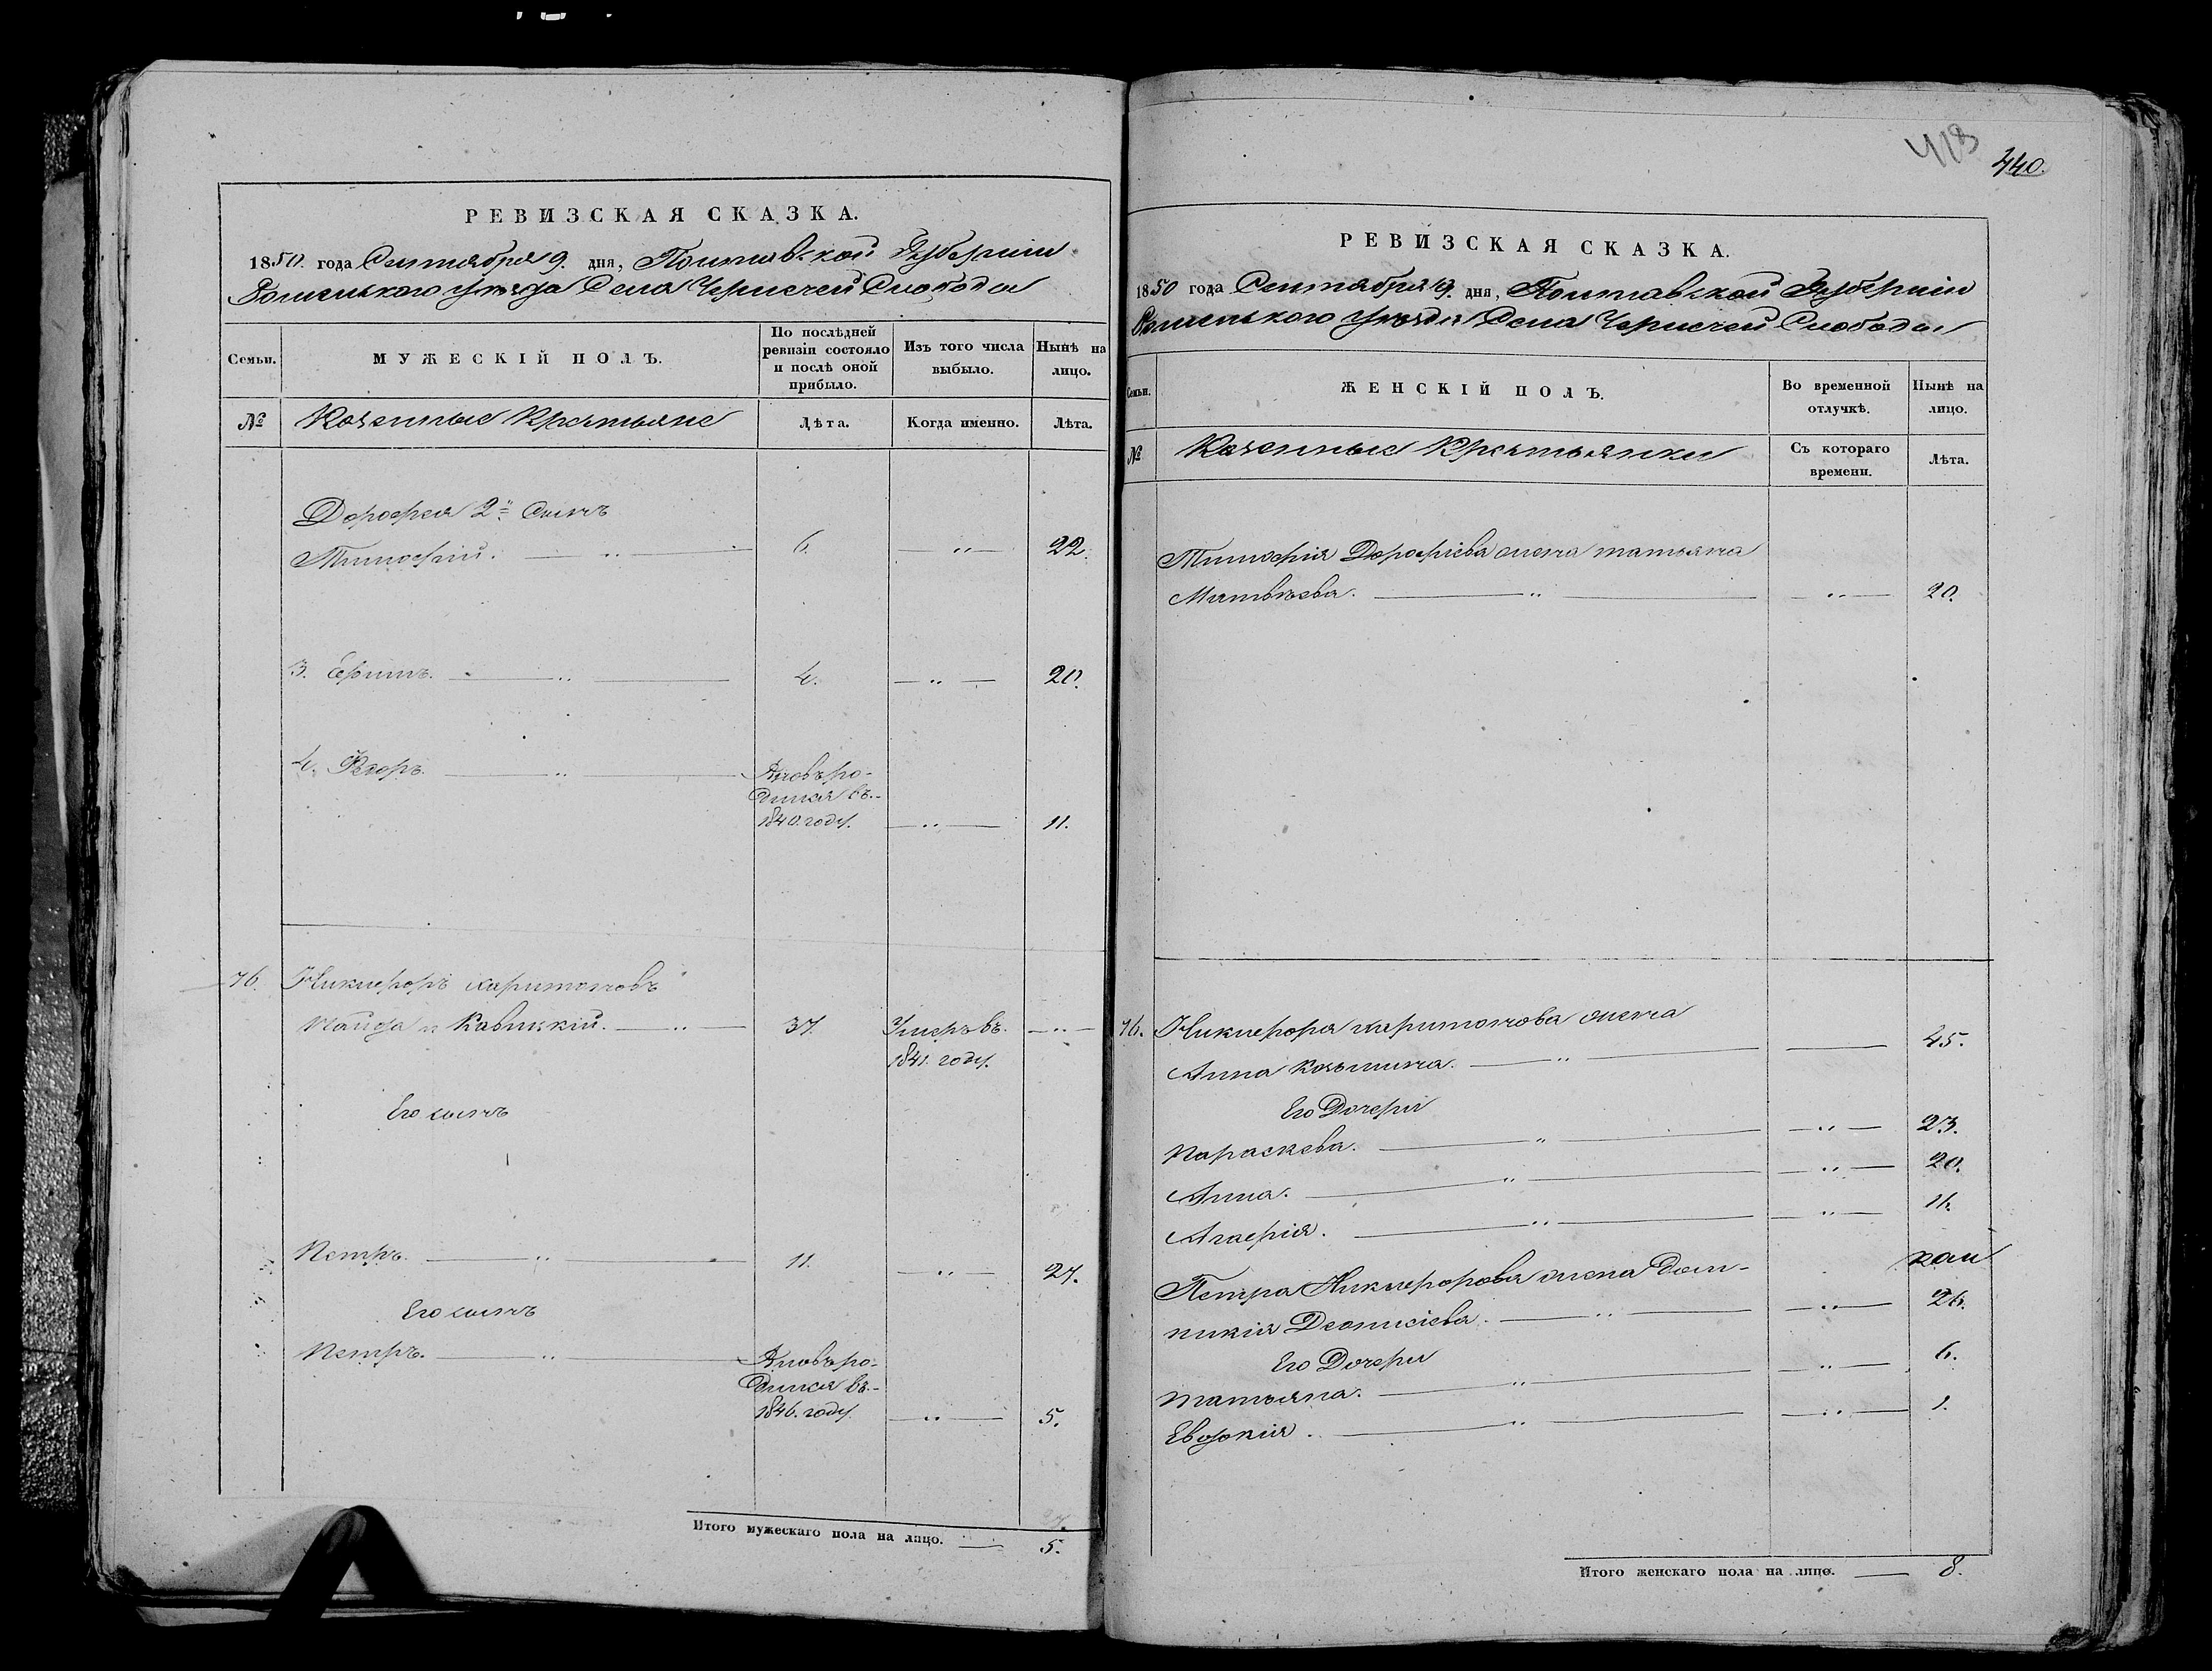 РЕВИЗСКАЯ СКАЗКА.
1850. года Сентября 9. дня, Полтавской Губерніи
Роменского уѣзда Села Чернечей Слободы
Семьи.
МУЖЕСКІЙ ПОЛЪ.
По послѣдней ревизіи состояло и послѣ оной прибыло.
Изъ того числа выбыло.
Нынѣ на лицо.
№
Казенные Крестьяне
Лѣта.
Когда именно.
Лѣта.
Дорофея 2й Сынъ
Тимофій. — „ — 6. „ — 22.
3. Ефимъ. — „ — 4. — „ — 20.
4. Федоръ. — „ — Вновь ро-
дился въ
1840. году. — „ — 11.
76. Никифоръ Харитоновъ
37. Умеръ въ — „ —
1841. году.
Его сынъ
Петръ. — „ — 11. — „ — 27.
Его сынъ
Петръ. — „ — Вновь ро-
дился въ
1846. году. — „ — 5.
Итого мужескаго пола на лицо. — 5.
440.
РЕВИЗСКАЯ СКАЗКА.
1850 года Сентября 9. дня, Полтавской Губерніи
Роменского уѣзда Села Чернечей Слободы
Семьи.
ЖЕНСКІЙ ПОЛЪ.
Во временной отлучкѣ.
Нынѣ на лицо.
№
Казенные Крестьянки
Съ котораго времени.
Лѣта.
Тимофія Дорофіева жена татьяна
Матвѣева. — „ — — „ — 20.
76. Никифора харитонова жена
Анна Козьмина. — „ — — 45.
Его Дочери
Параскева. — „ — — „ — 23.
Анна. — „ — — „ — 20.
Агафія. — „ — — „ — 16.
Петра Никифорова жена Дом-
никія Деонисіева. — „ — — „ — 26.
Его Дочери
татьяна. — „ — — „ — 6.
Евдокия. — „ — — „ — 1.
Итого женскаго пола на лицо. — 8.